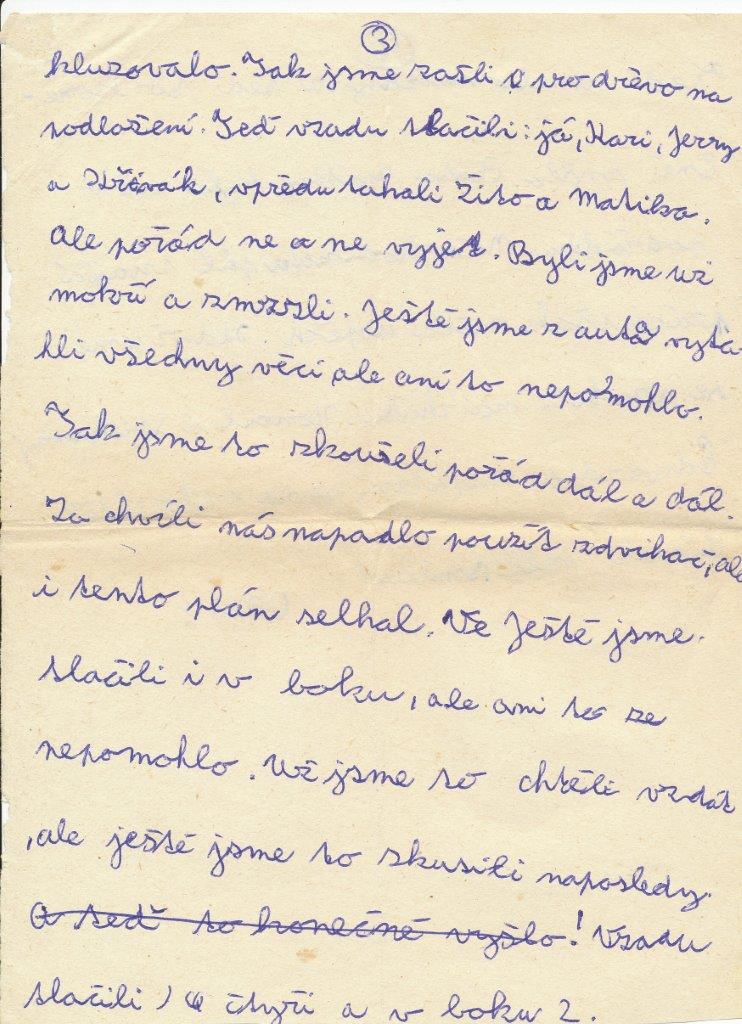 3
kluzovalo. Tak jsme zašli pro dřevo na
podložení. Teď vzadu tlačili: já, Kari, Jerry
a Křovák, vpředu tahali Žito a Matika.
Ale pořád ne a ne vyjet. Byli jsme už
mokří a zmrzli. Ještě jsme z auta vyta-
hli všedny věci ale ani to nepomohlo.
Tak jsme to zkoušeli pořád dál a dál.
Za chvíli nás napadlo použít zdvihač, ale
i tento plán selhal. Ještě jsme
tlačili i v boku, ale ani to
nepomohlo. Už jsme to chtěli vzdát
, ale ještě jsme to zkusili naposledy.
A teď to konečně vyšlo! Vzadu
tlačili čtyři a v boku 2.